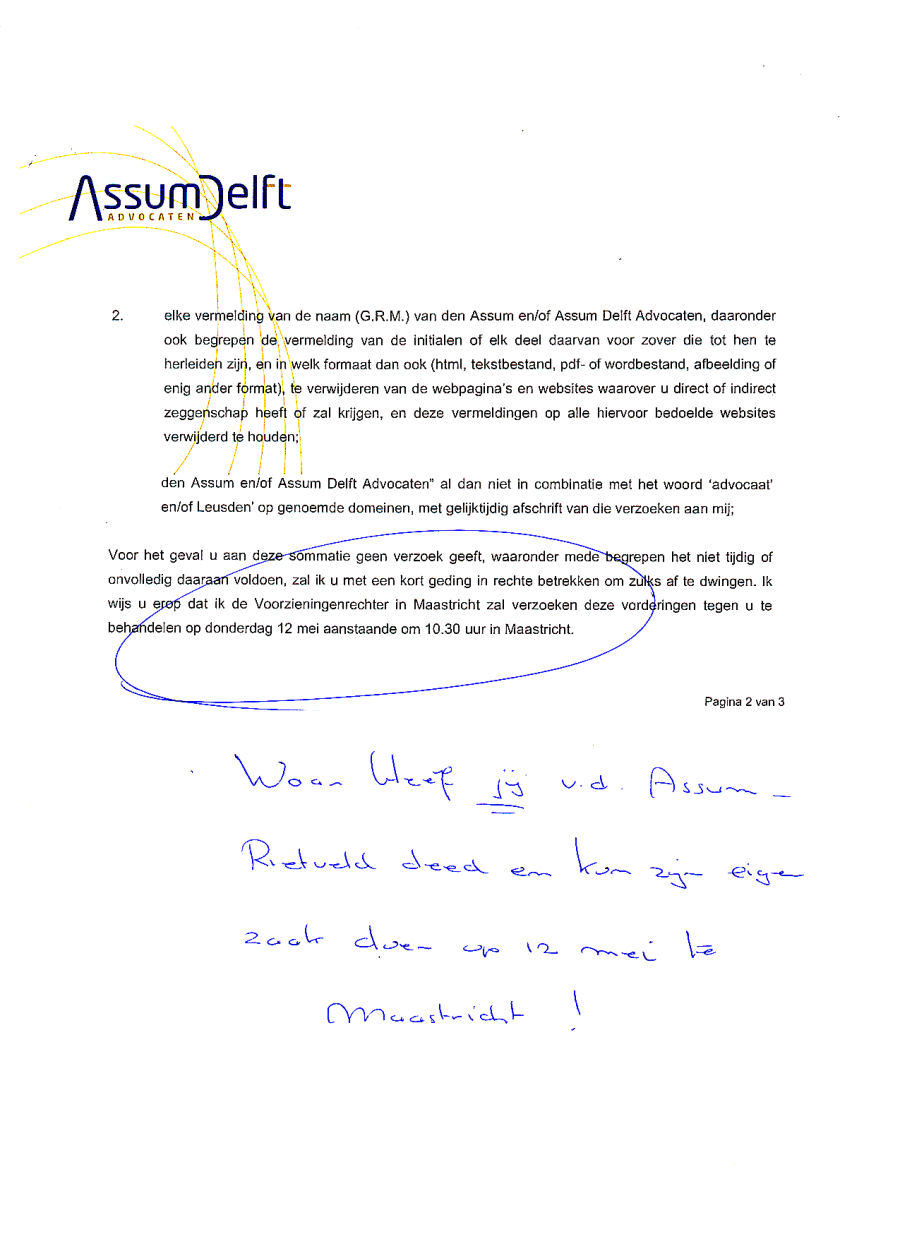 AssumDelft
ADVOCATEN
2. elke vermelding van de naam (G.R.M.) van den Assum en/of Assum Delft Advocaten, daaronder
ook begrepen de vermelding van de initialen of elk deel daarvan voor zover die tot hen te
herleiden zijn, en in welk formaat dan ook (html, tekstbestand, pdf- of wordbestand, afbeelding of
enig ander format), te verwijderen van de webpagina's en websites waarover u direct of indirect
zeggenschap heeft of zal krijgen, en deze vermeldingen op alle hiervoor bedoelde websites
verwijderd te houden;
den Assum en/of Assum Delft Advocaten" al dan niet in combinatie met het woord 'advocaat'
en/of Leusden' op genoemde domeinen, met gelijktijdig afschrift van die verzoeken aan mij;
Voor het geval u aan deze sommatie geen verzoek geeft, waaronder mede begrepen het niet tijdig of
onvolledig daaraan voldoen, zal ik u met een kort geding in rechte betrekken om zulks af te dwingen. Ik
wijs u erop dat ik de Voorzieningenrechter in Maastricht zal verzoeken deze vorderingen tegen u te
behandelen op donderdag 12 mei aanstaande om 10.30 uur in Maastricht.
Pagina 2 van 3
Waar bleef jij v.d. Assum -
Rietveld deed en kon zijn eigen
zaak doen op 12 mei te
Maastricht !